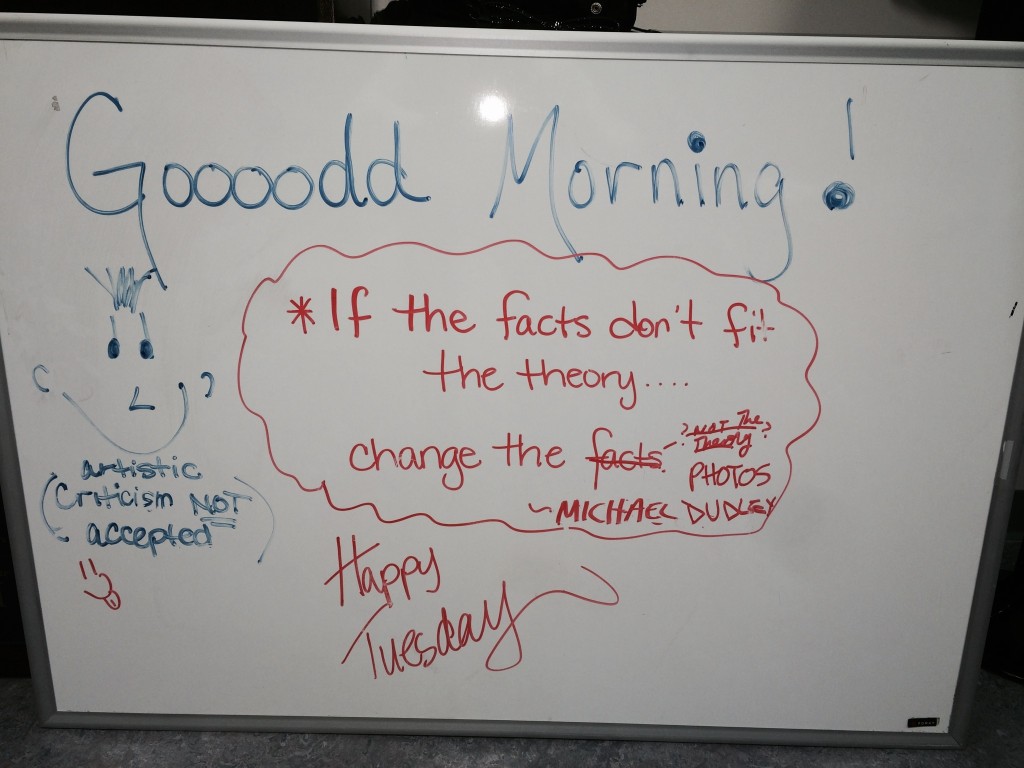 Goooodd Morning!
*If the facts don't fit
the theory....
change the facts
?NOT The?
Theory
PHOTOS
~MICHAEL DUDLEY
artistic
(Criticism NOT)
accepted
Happy
Tuesday